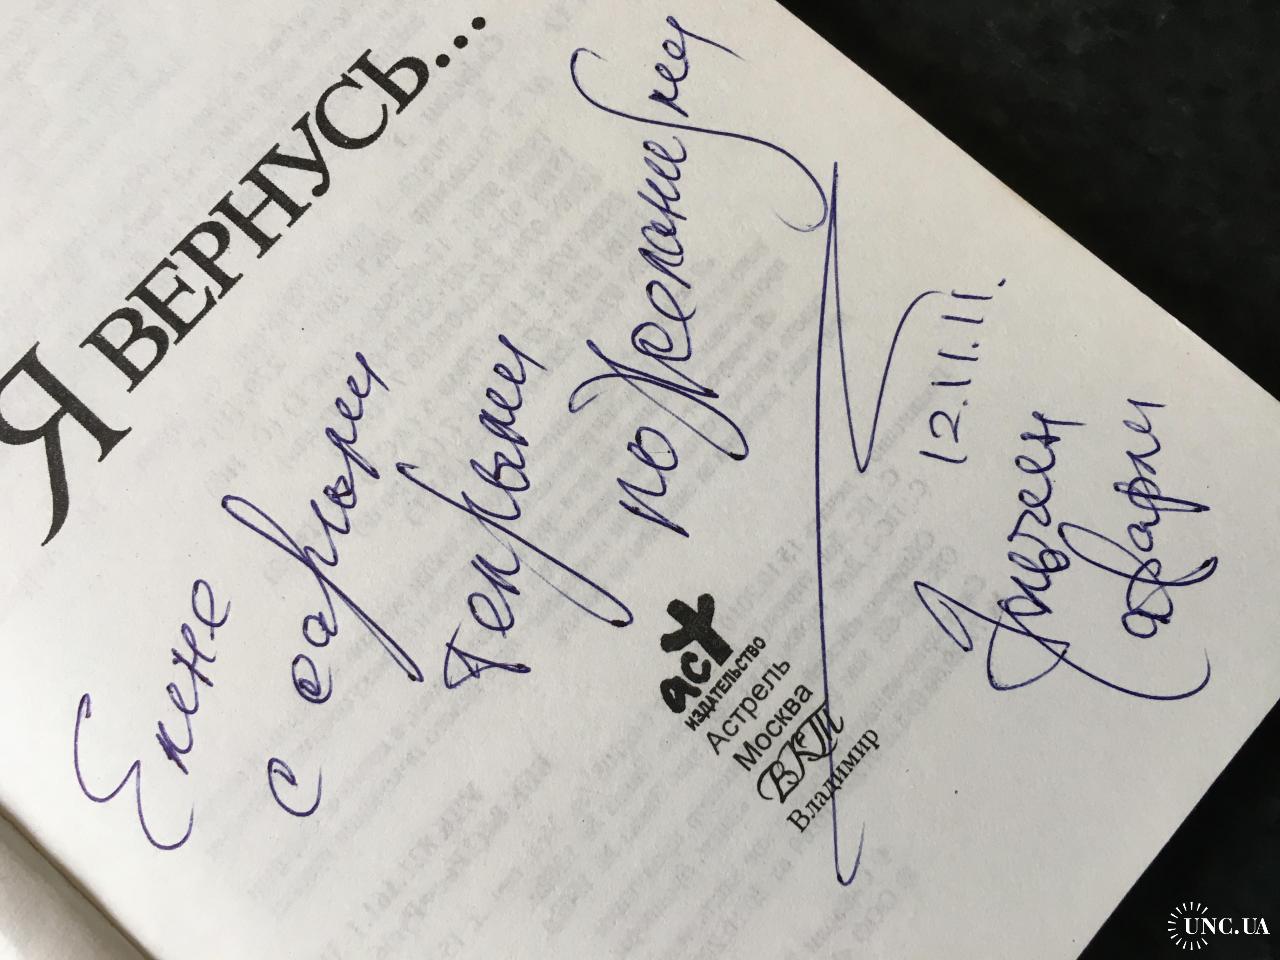 Я ВЕРНУСЬ...
Елене
с самыми
теплыми
пожеланиями
12.11.11.
аст
ИЗДАТЕЛЬСТВО
Астрель
Москва
ВКТ
Владимир
UNC.UA